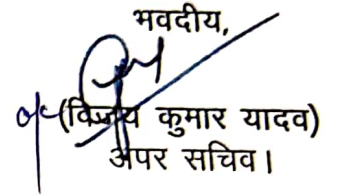 भवदीय,
(विजय कुमार यादव)
अपर सचिव।